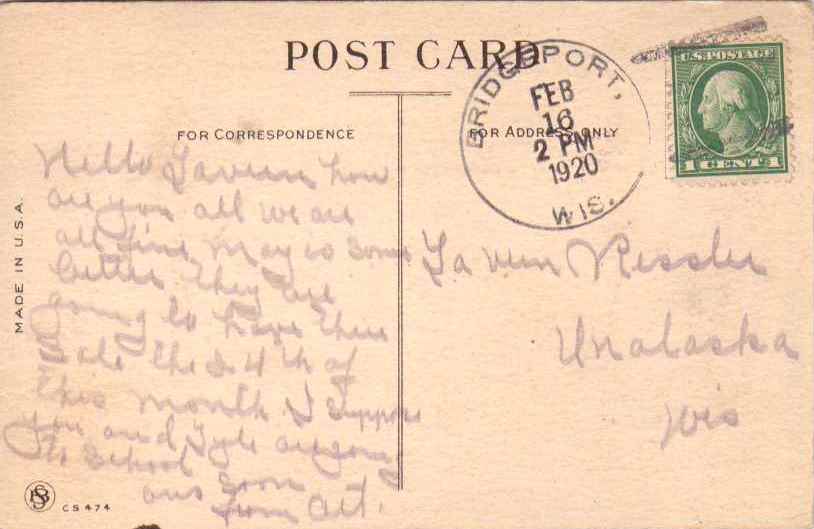 POST CARD
FOR CORRESPONDENCE
FOR ADDRESS ONLY
BRIDGEPORT,
FEB
16
2 PM
1920
WIS.
U.S. POSTAGE
1 CENT 1
MADE IN U.S.A.
Hello Lavern how
are you all we are
all fine, May is some
better they are
going to have there
Sale the 24 th of
this month I suppose
you and Lyle are going
to School
ans soon
from Art.
Lavern Ressler
Unalaska
Wis
CS 474